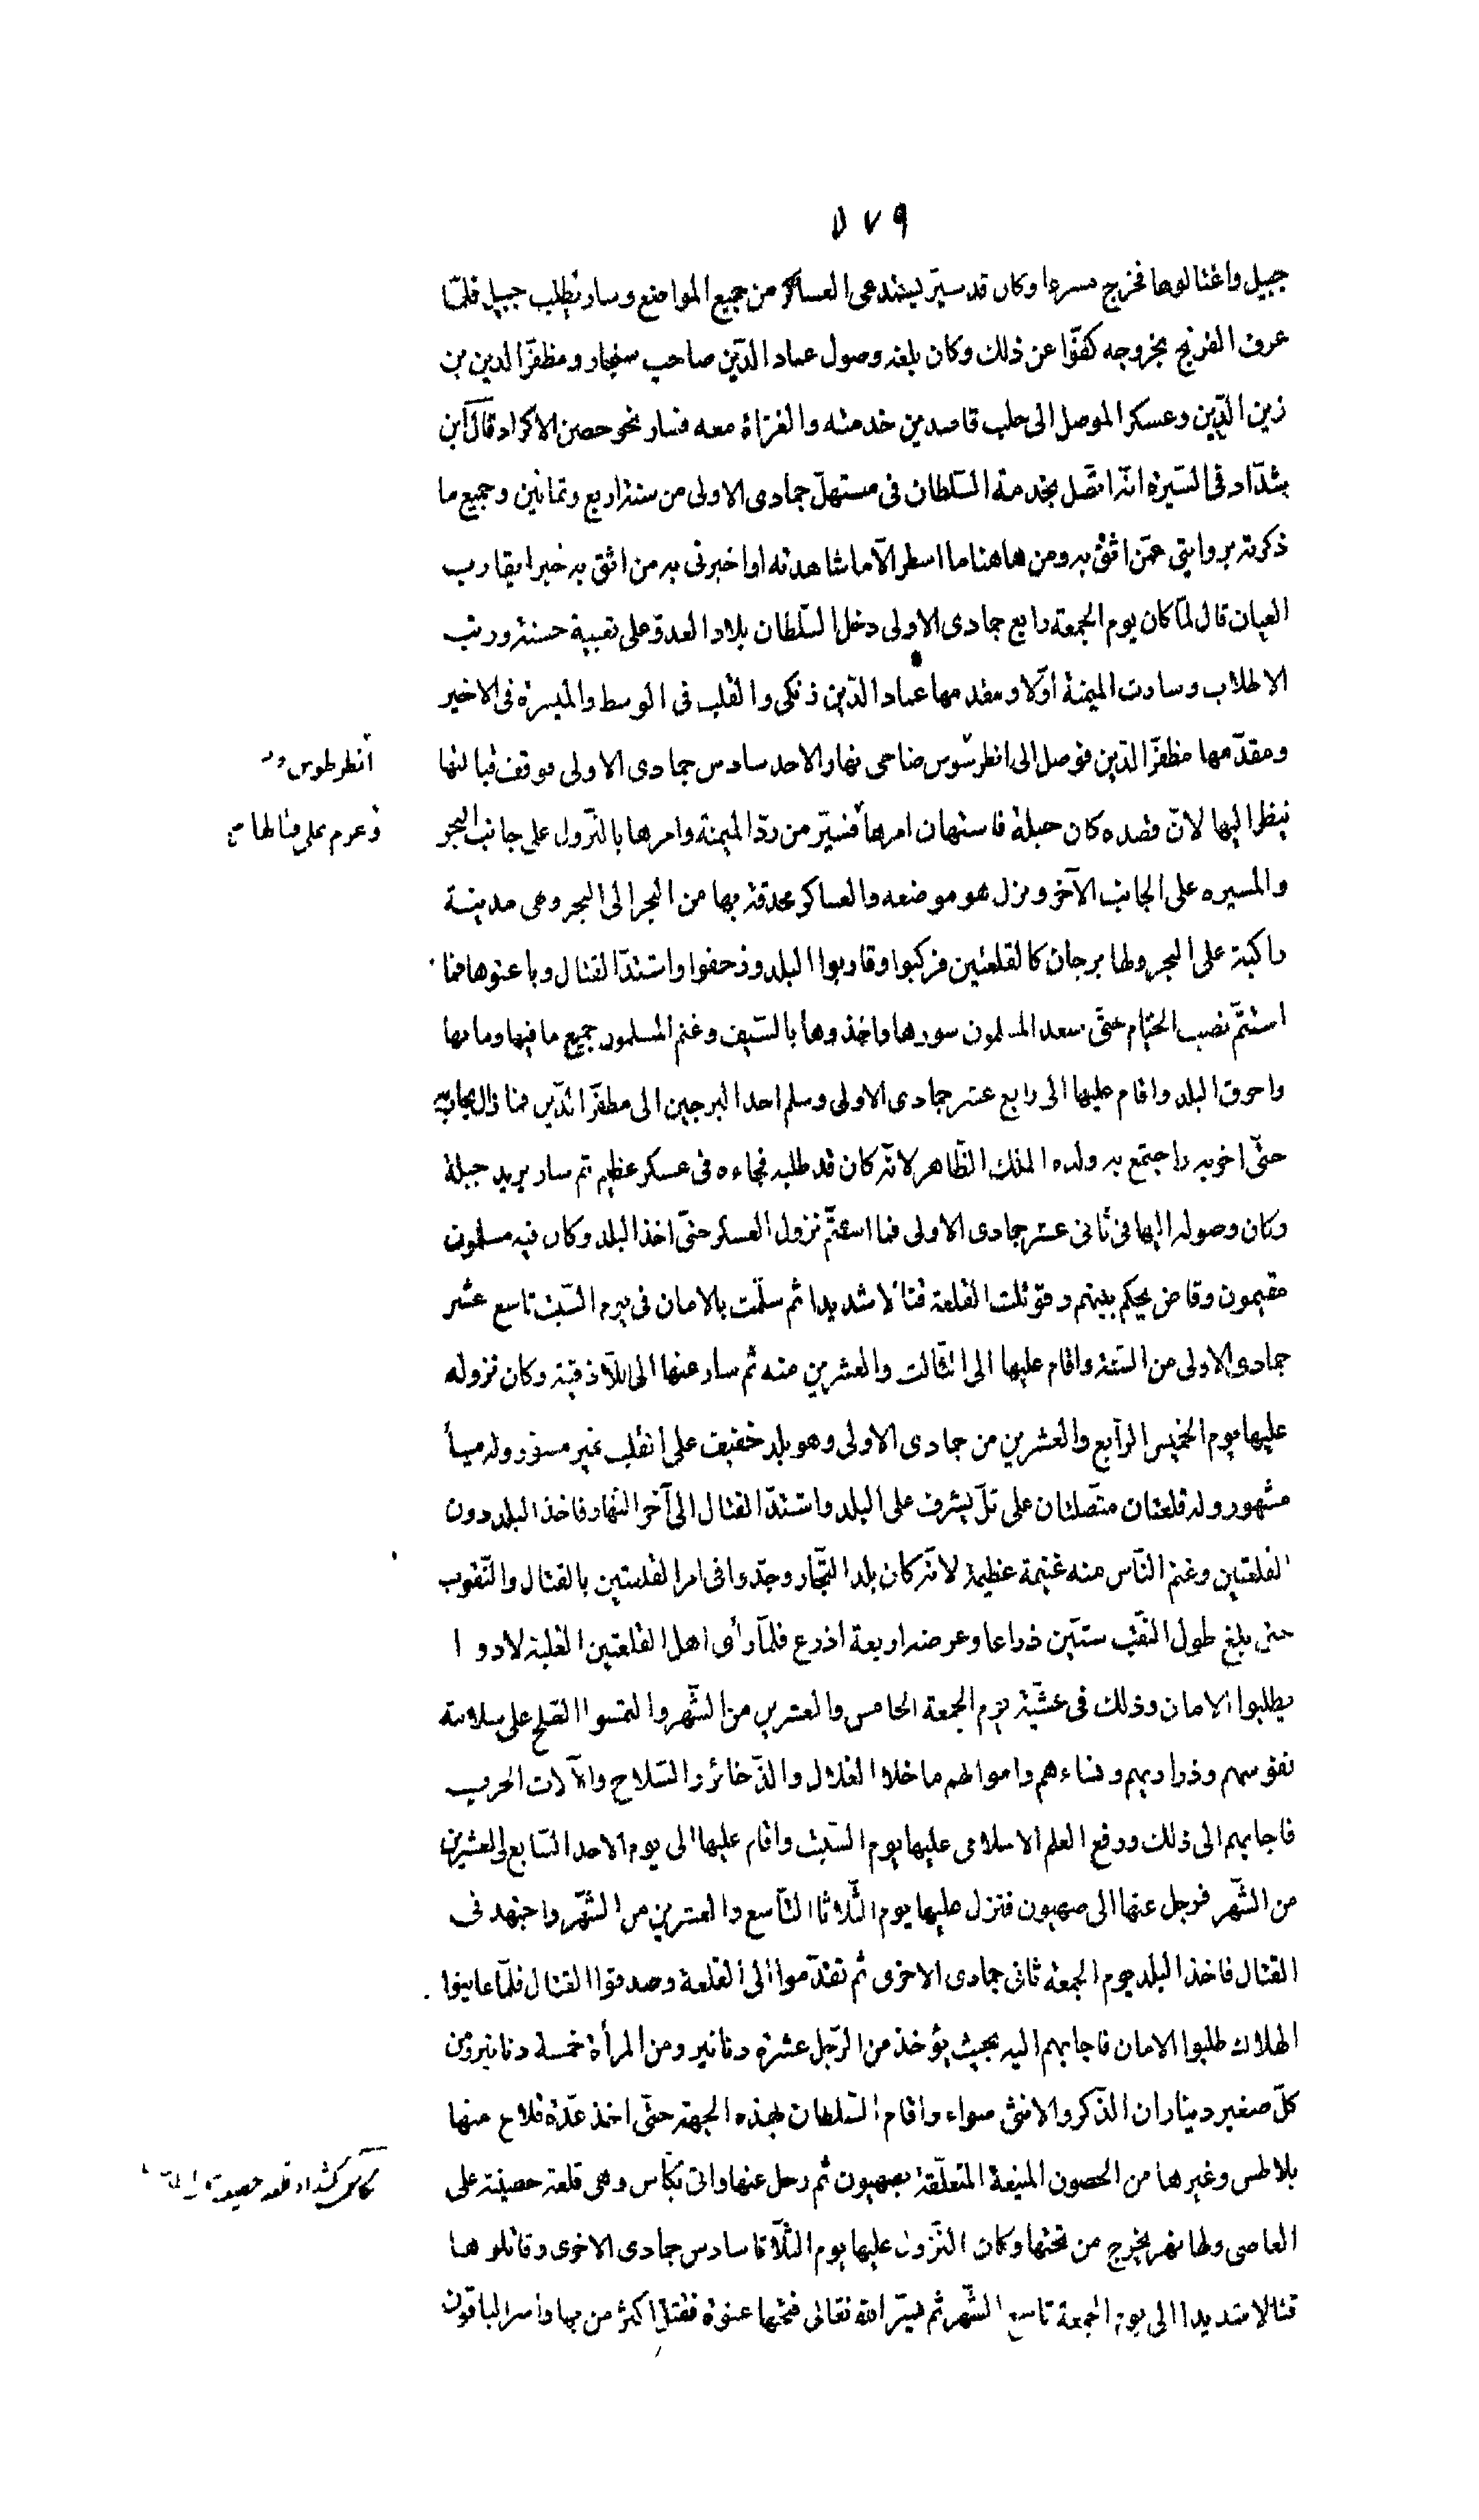 ٥٧٩
جبيل واغتالوها فخرج مسرعا وكان قد سيّر يستدعى العساكر من جميع المواضع وسار يطلب جبيل فلمّا
عرف الفرنج بخروجه كفّوا عن ذلك وكان بلغه وصول عماد الدّين صاحب سنجار ومظفّر الدين بن
زين الدّين وعسكر الموصل الى حلب قاصدين خدمته والغزاة معه فسار نحو حصن الاكراد قال ابن
شدّاد فى السّيرة انّه اتّصل بخدمة السّلطان فى مستهلّ جمادى الاولى من سنة اربع وثمانين وجميع ما
ذكرته بروايتى عمّن اثق به ومن هاهنا ما اسطر الّا ما شاهدته او اخبرنى به من اثق به خبرا يقارب
العيان قال لمّا كان يوم الجمعة رابع جمادى الاولى دخل السّلطان بلاد العدوّ على تعبية حسنة ورتب
الاطلاب وسارت الميمنة اوّلا ومقدمها عماد الدّين زنكى والقلب فى الوسط والميسرة فى الاخير
ومقدّمها مظفّر الدّين فوصل الى انطرسوس ضاحى نهار الاحد سادس جمادى الاولى فوقف قبالتها
انطرطوس
ينظر اليها لانّ قصده كان جبلة فاستهان امرها فسيّر من ردّ الميمنة وامرها بالنّزول على جانب البحر
وعزم على قتالها
والميسره على الجانب الآخر ونزل هو موضعه والعساكر محدقة بها من البحر الى البحر وهى مدينة
راكبة على البحر ولها برجان كالقلعتين فركبوا وقاربوا البلد وزحفوا واشتدّ القتال وباغتوها فما
استتمّ نصب الخيام حتّى صعد المسلمون سورها واخذوها بالسّيف وغنم المسلمون جميع ما فيها وما بها
واحرق البلد واقام عليها الى رابع عشر جمادى الاولى وسلم احد البرجين الى مظفّر الدّين فما زال يحاربه
حتّى اخربه واجتمع به ولده الملك الظّاهر لانّه كان قد طلبه فجاءه فى عسكر عظيم ثم سار يريد جبلة
وكان وصوله اليها فى ثانى عشر جمادى الاولى فما استتمّ نزول العسكر حتّى اخذ البلد وكان فيه مسلمون
مقيمون وقاض يحكم بينهم وقوتلت القلعة قتالا شديدا ثم سلّمت بالامان فى يوم السّبت تاسع عشر
جمادى الاولى من السّنة واقام عليها الى الثّالث والعشرين منه ثم سار عنها الى اللّاذقية وكان نزوله
عليها يوم الخميس الرّابع والعشرين من جمادى الاولى وهو بلد خفيف على القلب غير مسور وله مينا
مشهور وله قلعتان متّصلتان على تلّ يشرف على البلد واشتدّ القتال الى آخر النّهار فاخذ البلد دون
القلعتين وغنم النّاس منه غنيمة عظيمة لانّه كان بلد التّجار وجدّوا فى امر القلعتين بالقتال والنّقوب
حتى بلغ طول النّقب ستّين ذراعا وعرضه اربعة اذرع فلمّا رأى اهل القلعتين الغلبة لاذوا
يطلبوا الامان وذلك فى عشيّة يوم الجمعة الخامس والعشرين من الشّهر والتمسوا الصّلح على سلامة
نفوسهم وذراريهم ونساءهم واموالهم ما خلا الغلال والذّخائر والسّلاح والآلات الحرب
فاجابهم الى ذلك ورفع العلم الاسلامى عليها يوم السّبت واقام عليها الى يوم الاحد السّابع والعشرين
من الشّهر فرحل عنها الى صهيون فنزل عليها يوم الثّلاثا التّاسع والعشرين من الشّهر واجتهد فى
القتال فاخذ البلد يوم الجمعه ثانى جمادى الاخرى ثم تقدّموا الى القلعة وصدقوا القتال فلمّا عاينوا
الهلاك طلبوا الامان فاجابهم اليه بحيث يؤخذ من الرّجل عشرة دنانير ومن المرأة خمسة دنانير ومن
كلّ صغير ديناران الذّكر والانثى سواء واقام السّلطان بهذه الجهة حتّى اخذ عدّة قلاع منها
بلاطس وغيرها من الحصون المنيعة المتعلّقة بصهيون ثم رحل عنها واتى بكّاس وهى قلعة حصينة على
بكاس كشداد قلعه حصينة
العاصى ولها نهر يخرج من تحتها وكان النّزول عليها يوم الثّلاثا سادس جمادى الاخرى وقاتلوها
قتالا شديدا الى يوم الجمعة تاسع الشّهر ثم يسّر الله تعالى فتحها عنوة فقتل اكثر من بها واسر الباقون